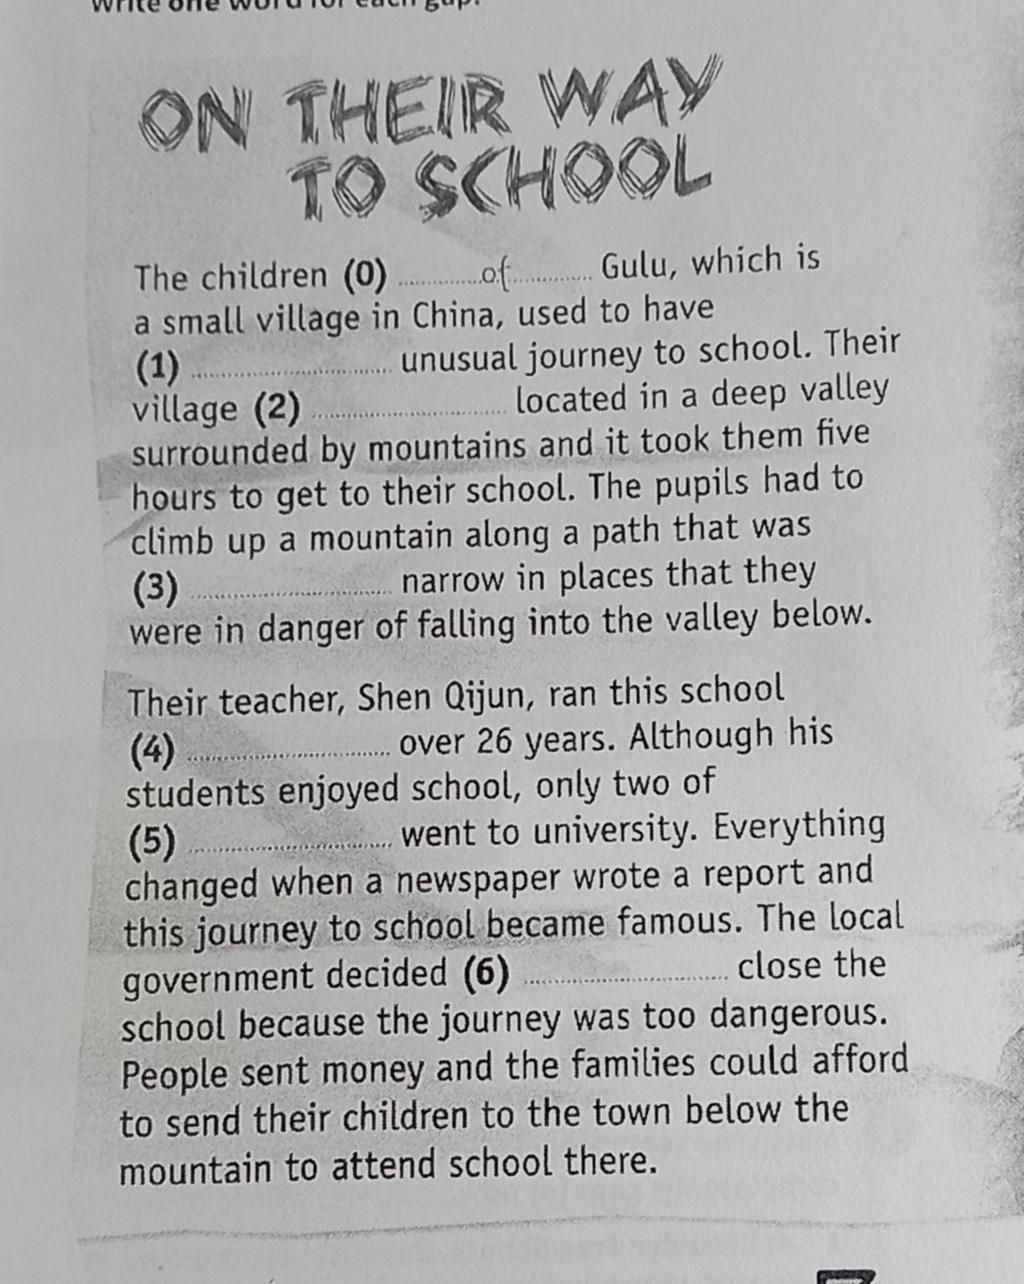 Write one word for each gap.
ON THEIR WAY
TO SCHOOL
The children (0) ............of............ Gulu, which is
a small village in China, used to have
(1) .............................. unusual journey to school. Their
village (2) .............................. located in a deep valley
surrounded by mountains and it took them five
hours to get to their school. The pupils had to
climb up a mountain along a path that was
(3) .............................. narrow in places that they
were in danger of falling into the valley below.
Their teacher, Shen Qijun, ran this school
(4) .............................. over 26 years. Although his
students enjoyed school, only two of
(5) .............................. went to university. Everything
changed when a newspaper wrote a report and
this journey to school became famous. The local
government decided (6) .............................. close the
school because the journey was too dangerous.
People sent money and the families could afford
to send their children to the town below the
mountain to attend school there.